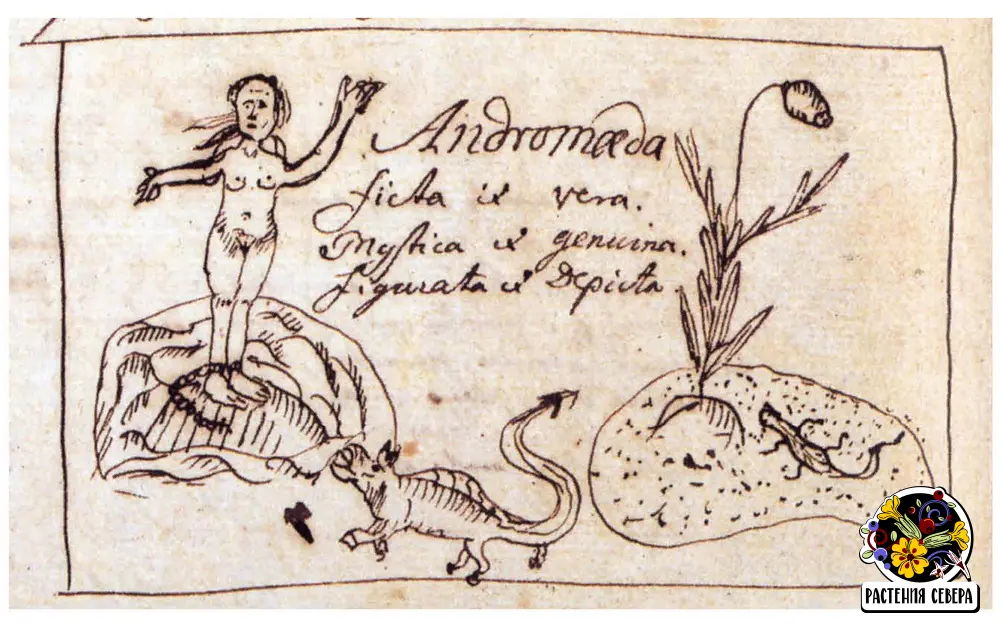 Andromæda
ficta et vera.
Mystica et genuina.
figurata et Depicta.
РАСТЕНИЯ СЕВЕРА